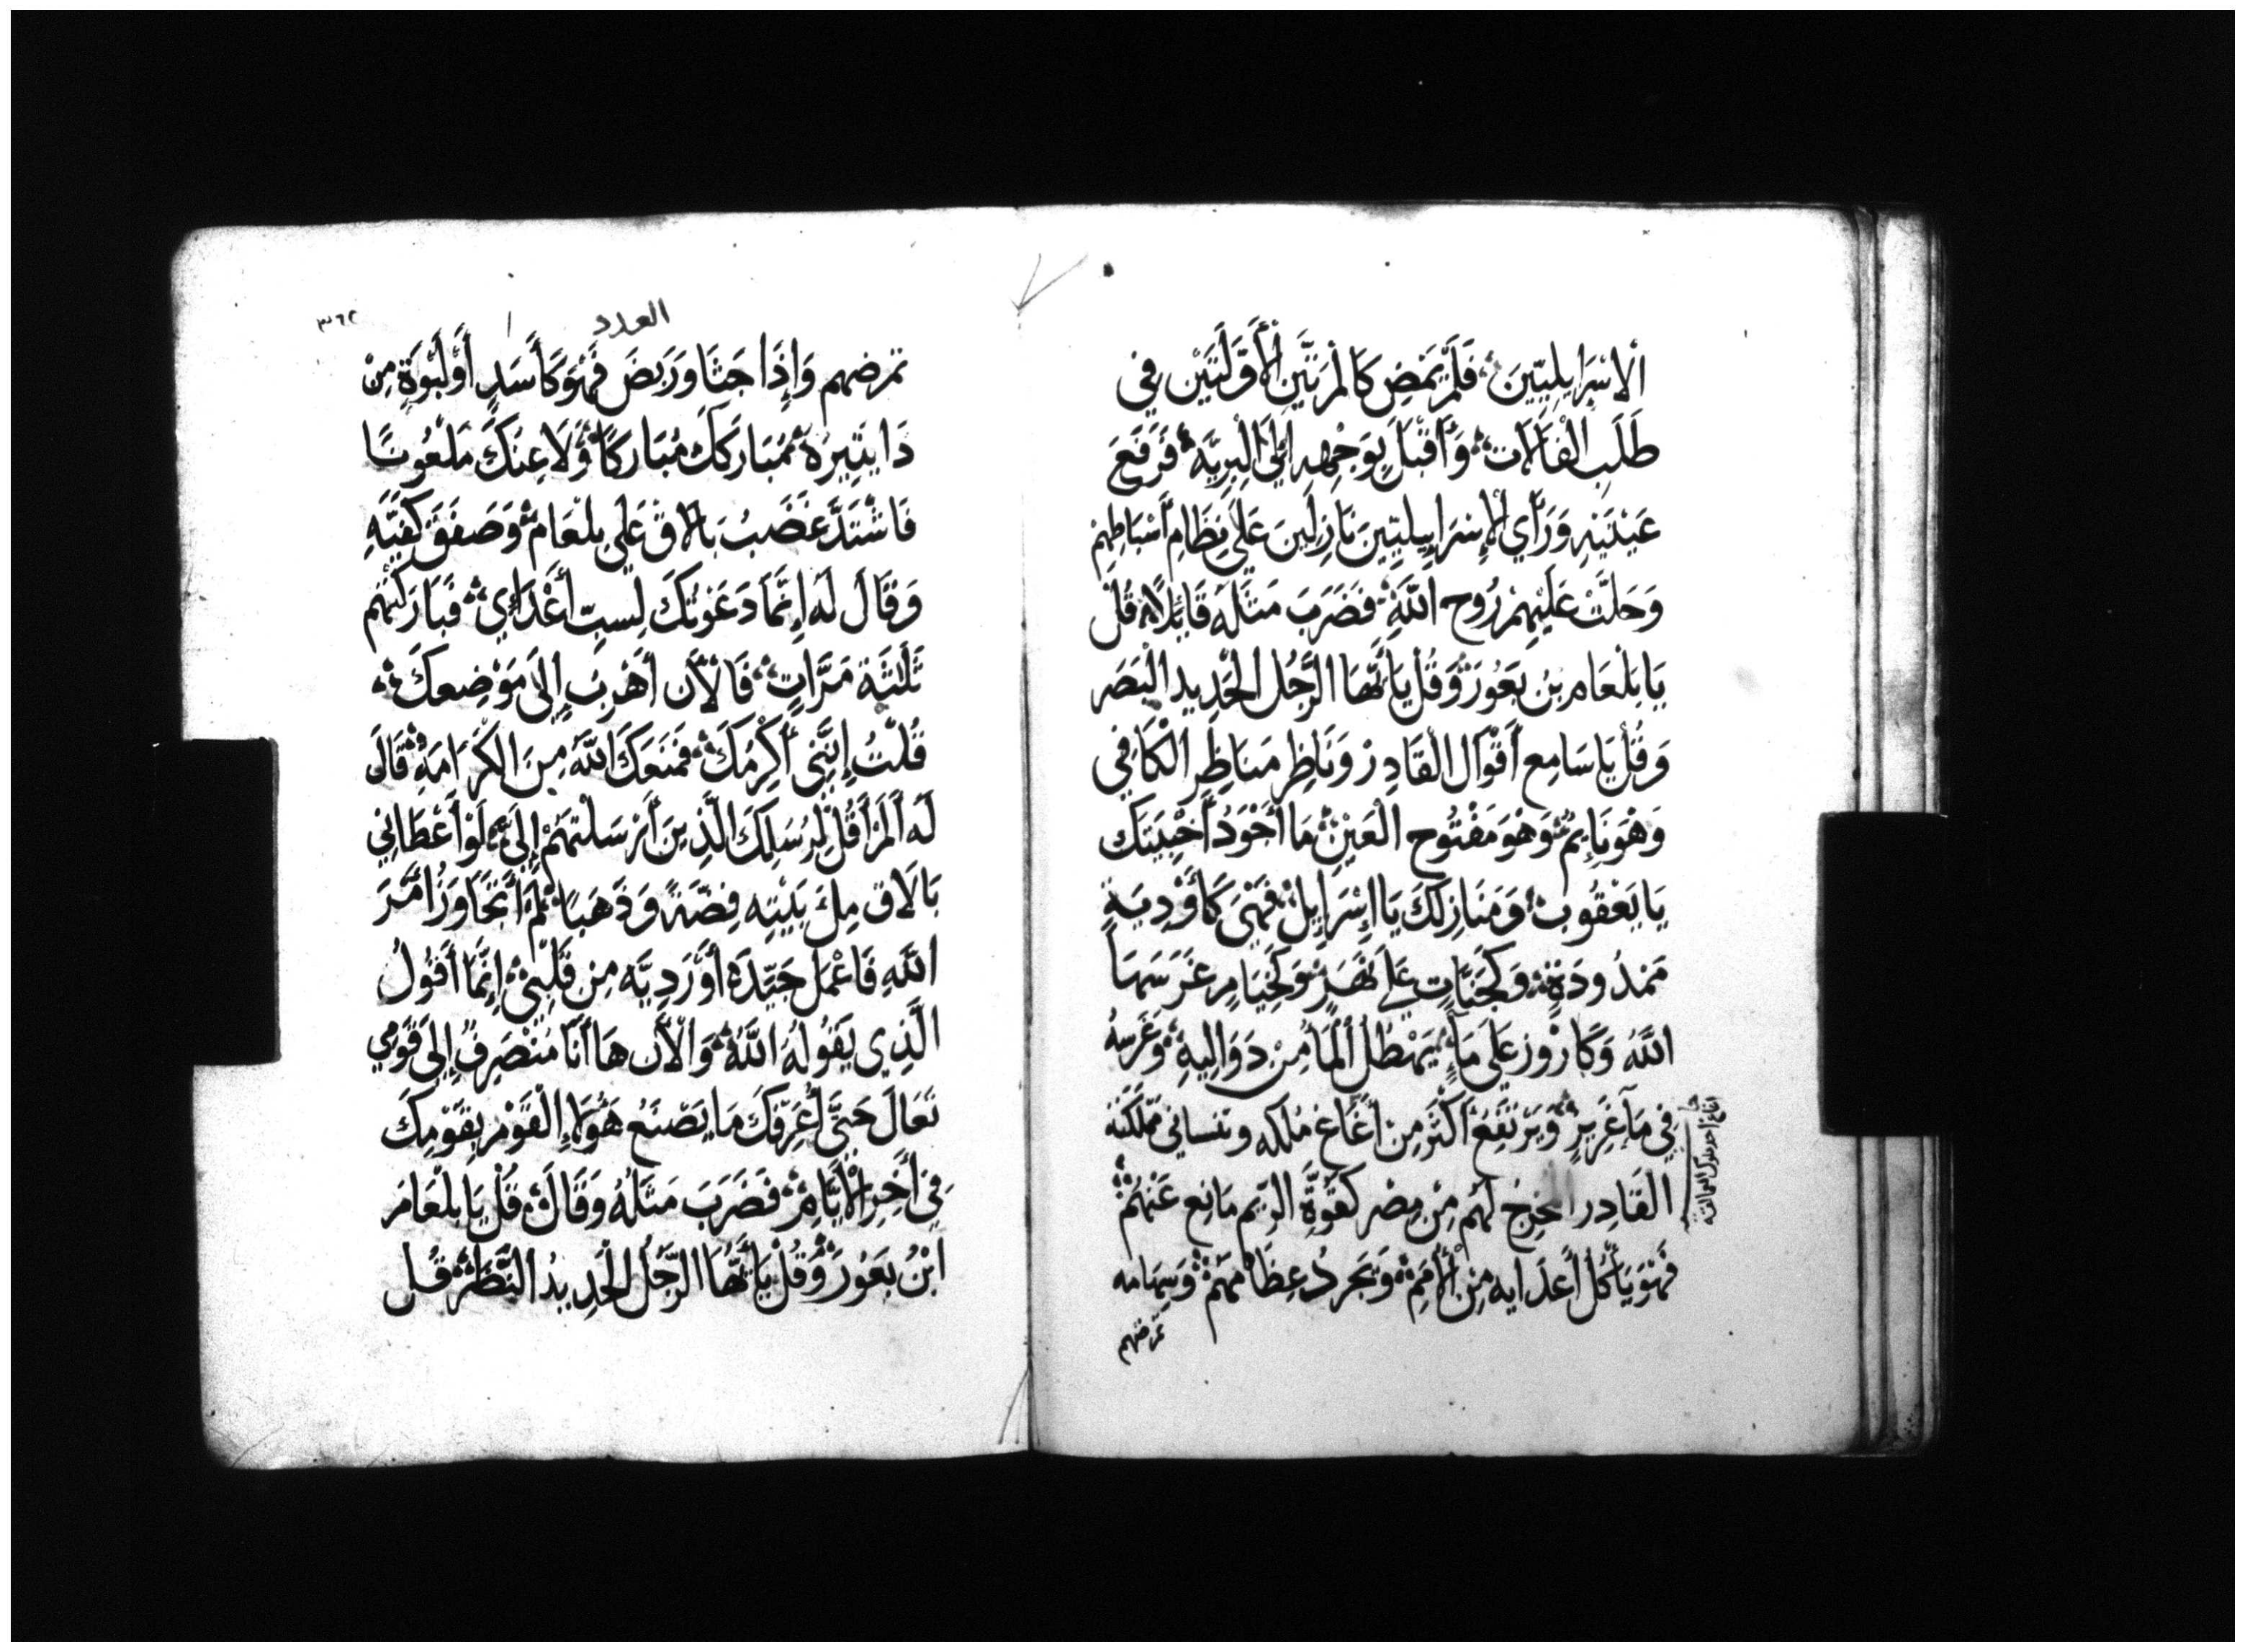 الاسْرَايليّينَ، فَلَمْ يَمْضِ كَالمْرَتَّيَنِ الْأَوَلَتَيْنِ فِي
طَلَبِ الْفَالَاتِ، وَأَقْبَلَ بِوَجْهِهِ إلَى الْبرِيَّه، فَرَفَعَ
عَيْنَيْهِ وَرَأَي الْإِسْرَاِيِيلِيّينَ نَازِلينَ عَلَي نِظَامِ أَسْبَاطِهِمْ
وَحَلَّتْ عَلَيْهِمْ رُوح اللَّهِ، فَضَرَبَ مَثَلَه قَايِلًا، قُلْ
يَا بَلْعَام بنُ بَعُورَ، وَقُلْ يَا أَيُّهَا الرَّجُل الْحَدِيد الْبَصَر
وَقُلْ يَا سَامِع أَقْوَال الْقَادِرْ وَنَاظِر مَنَاظِر الْكَافِي
وَهْوَ نَايِمُ، وَهْوَ مَفْتُوح الْعَيْنِ، مَا أَجْوَدُ أَخْبِيَتَك
يَا يَعْقُوبُ، وَمَنَازِلِكَ يَا إِسْرَايِلُ، فَهْيَ كَأَوْدِيَةٍ
مَمْدُودَةٍ، وَكَجَنَّاتٍ عَلَي نَهَرٍ، وَكَخِيَامٍ غَرَسَهَا
اللَّهُ وَكَارْوِز عَلَي مَآءٍ، يَهْطُل الْمَآءُ مِنْ دَوَالِيهِ، وَغَرْسهُ
فِي مَآ غَزِيرٍ، وَيَرْتَفِعُ أَكْثَر مِنْ أَغَاغ مُلكه وتنساني مَمْلكَتَه
القَادِر المخرِج لَهُم مِنْ مِصْر كَقُوَّةِ الرّيم مَانِع عَنْهُمْ،
فَهْوَ يَأْكُل أَعدَايه مِن الْأُمَمِ، وَيَجرِدُ عِظَامَهُمْ، وَسِهَامه
تمرضهم
اغاغ احد ملوك العمالقه
العدد
٣٦٢
تمرضهم وَإِذَا جَثَا وَرَبَضَ فَهْوَ كَأَسَدٍ أَوْ لَبْوَةٍ مِنْ
ذَا يثِيرهُ، مُبَارَكَك مُبَارَكًا، وَلَاعِنَكَ مَلْعُونًا
فَاشْتَدَّ غَضَبُ بَالَاق عَلَي بلْعَام، وَصَفَقَ كَفَيَّهِ
وَقَالَ لَهُ إِنَّمَا دَعَوْتُكَ لِسبّ أَعْدَاءِي، فَبَارَكْتَهُم
ثَلثَة مَرَّاتٍ، فَالْأَن أَهْرِب إِلَى مَوْضِعكَ،
قُلْتُ إِنَّنِي أُكْرِمُكَ، فَمَنَعَكَ اللَّهُ مِنَ الكَرَامَةِ، قَالَ
لَه أَلَمْ أَقُل لِرُسَلِكَ الَّذِينَ أَرْسَلْتهمْ إِلَيَّ، لَوْ أَعْطَانِي
بَالَاق مِلْءَ بَيْتِه فِضّةً وَذَهَبًا، لَمْ أَتَجَاوَزُ أَمْرَ
اللَّهِ فَاعْمَل جَيّدَة أَوْ رَدِيَّه مِن قَلْبِي، إِنَّمَا أَقُولُ
الَّذِي يَقُولهُ اللَّهُ، وَالْأَن هَا أَنَا مُنْصَرِفُ إِلَى قَوْمِي
تَعَالَ حَتَّى أُعَرِّفَكَ مَا يَصْنَع هَؤُلَآءِ الْقَوْم بِقَوْمِكَ
فِي أَخِر الْأَيَّامِ، فَضَرَبَ مَثَلهُ وَقَالَ، قُلْ يَا بلْعَامَ
ابْنُ بَعُورَ، وَقُلْ يَا أَيُّهَا الرَّجُلُ الْحَدِيدُ النَّظَرَ، قُل